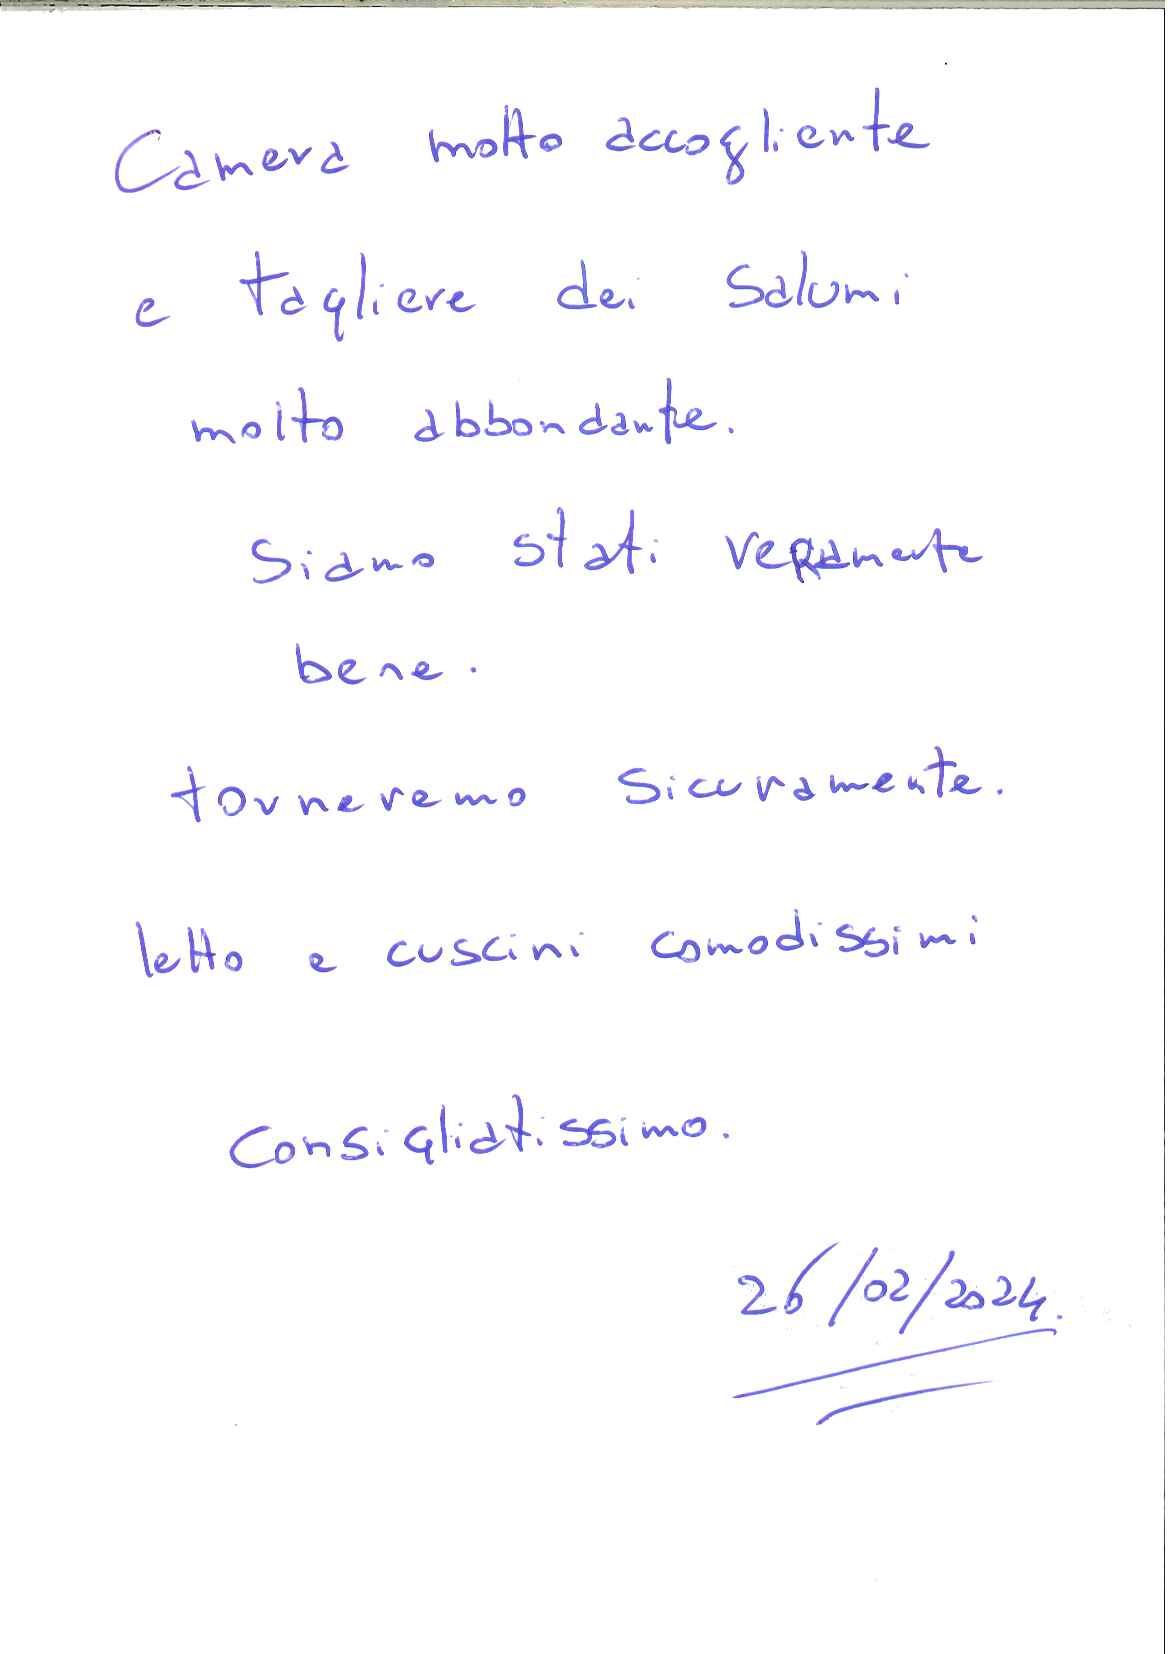 Camera molto accogliente
e tagliere dei Salumi
molto abbondante.
Siamo stati veramente
bene.
torneremo sicuramente.
letto e cuscini comodissimi
Consigliatissimo.
26/02/2024.